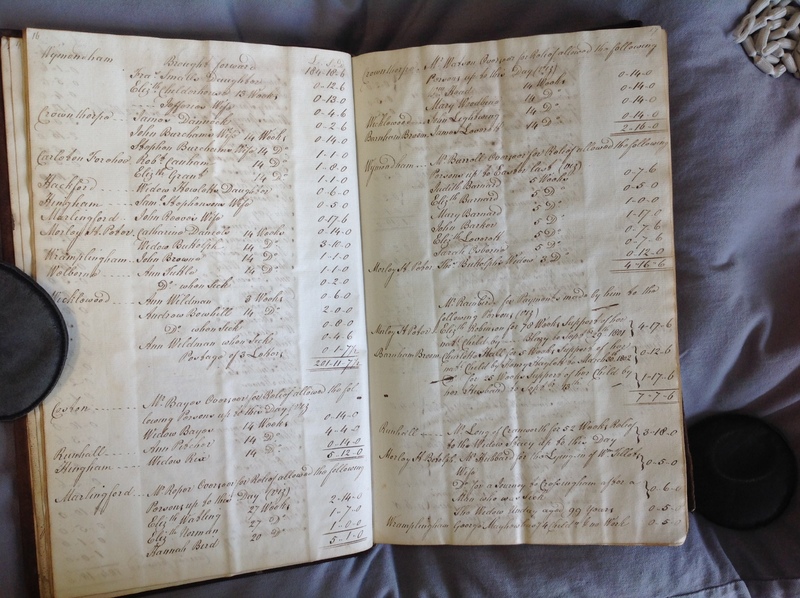 16
Brought forward 184-18-6
Wymondham Fra. Smith's Daughter 0-12-6
Eliz:th 13 Weeks 0-13-0
Jefferson Wife 0-4-6
Crownthorpe James 0-2-6
John Burcham's Wife 14 Weeks 0-14-0
Stephen Burcham's Wife 14 D.o
Carleton Forehoe Rob:t Canham 14 D.o 1-1-0
Eliz:th Grant 14 D.o 1-8-0
Hackford Widow Daughter 1-1-0
Hingham Sam:l Stephenson Wife 0-6-0
Marlingford John Reeve's Wife 0-5-0
Morley St. Peter Catherine 14 Weeks 0-17-6
Widow Buttolph 14 D.o 0-14-0
Wramplingham John Browne 14 D.o 3-10-0
Welborne Ann 14 D.o 1-1-0
D.o when Sick 1-1-0
Wicklewood Ann Wildman 3 Weeks 0-2-0
Andrew Bowhill 14 D.o 0-6-0
D.o when Sick 2-0-0
Ann Wildman when Sick 0-8-0
Postage of 3 Letters 0-4-6
0-1-7½
201-11-7½
Coston M.r Bayes Overseer for Relief allowed the fol-
lowing Persons up to this Day (viz)
Widow Bayes 14 Weeks 0-14-0
Runhall Ann Pitcher 14 D.o 4-4-0
Hingham Widow Rix 14 D.o 0-14-0
5-12-0
Marlingford M.r Roper Overseer for Relief allowed the following
Persons up to this Day (viz)
Eliz:th Watling 27 Weeks 2-14-0
Eliz:th Norman 27 D.o 1-7-0
Hannah Bird 20 D.o 1-0-0
5-1-0
Crownthorpe M.r Watson Overseer for Relief allowed the following
Persons up to this Day (viz)
14 Weeks 0-14-0
Mary Woodbine 14 D.o 0-14-0
Wicklewood Jean 14 D.o 0-14-0
Barnham Broom James 14 D.o 0-14-0
2-16-0
Wymondham M.r Barrell Overseer for Relief allowed the following
Persons up to Easter last (viz)
Judith Barnard 5 Weeks 0-7-6
Eliz:th Burnard 5 D.o 0-5-0
Mary Barnard 5 D.o 1-0-0
John Barker 5 D.o 1-17-0
Eliz:th 5 D.o 0-7-6
Sarah Osborne 5 D.o 0-7-6
Morley St. Peter Tho:s Buttolph's Widow 3 D.o 0-12-0
4-16-6
M.r for Payments made by him to the
following Persons (viz)
Morley St. Peter Eliz:th Robinson for 78 Weeks Support of her
Child by to Sept.r 29.th 1801 4-17-6
Barnham Broom Charlotte Hall for 5 Weeks Support of her
Child by to March 30 1802 0-12-6
for 25 Weeks Support of her Child by
her Husband 1-17-6
7-7-6
Runhall M.r Long of for 52 Weeks Relief
to the Widow up to this day 3-18-0
Morley St. Botolph M.r Hubbard for the Lying-in of W.m
Wife 0-5-0
D.o for a Journey to Crossingham after a
Man who was Sick 0-6-0
The Widow aged 99 Years 0-5-0
Wramplingham George Child one Week 0-5-0